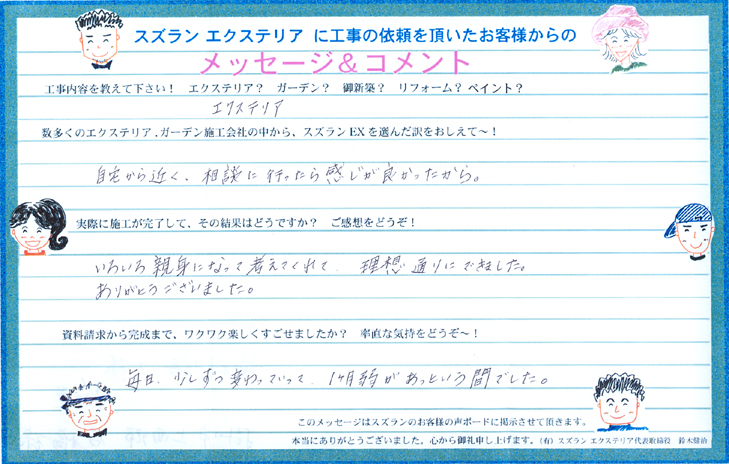 スズラン エクステリア に工事の依頼を頂いたお客様からの
メッセージ＆コメント
工事内容を教えて下さい！ エクステリア？ ガーデン？ 御新築？ リフォーム？ ペイント？
エクステリア
数多くのエクステリア､ガーデン施工会社の中から、スズランEXを選んだ訳をおしえて～！
自宅から近く、相談に行ったら感じが良かったから。
実際に施工が完了して、その結果はどうですか？ ご感想をどうぞ！
いろいろ親身になって考えてくれて、理想通りにできました。
ありがとうございました。
資料請求から完成まで、ワクワク楽しくすごせましたか？ 率直な気持をどうぞ～！
毎日、少しずつ変わっていって、1ヶ月弱があっという間でした。
このメッセージはスズランのお客様の声ボードに掲示させて頂きます。
本当にありがとうございました。心から御礼申し上げます。(有) スズラン エクステリア代表取締役 鈴木健治